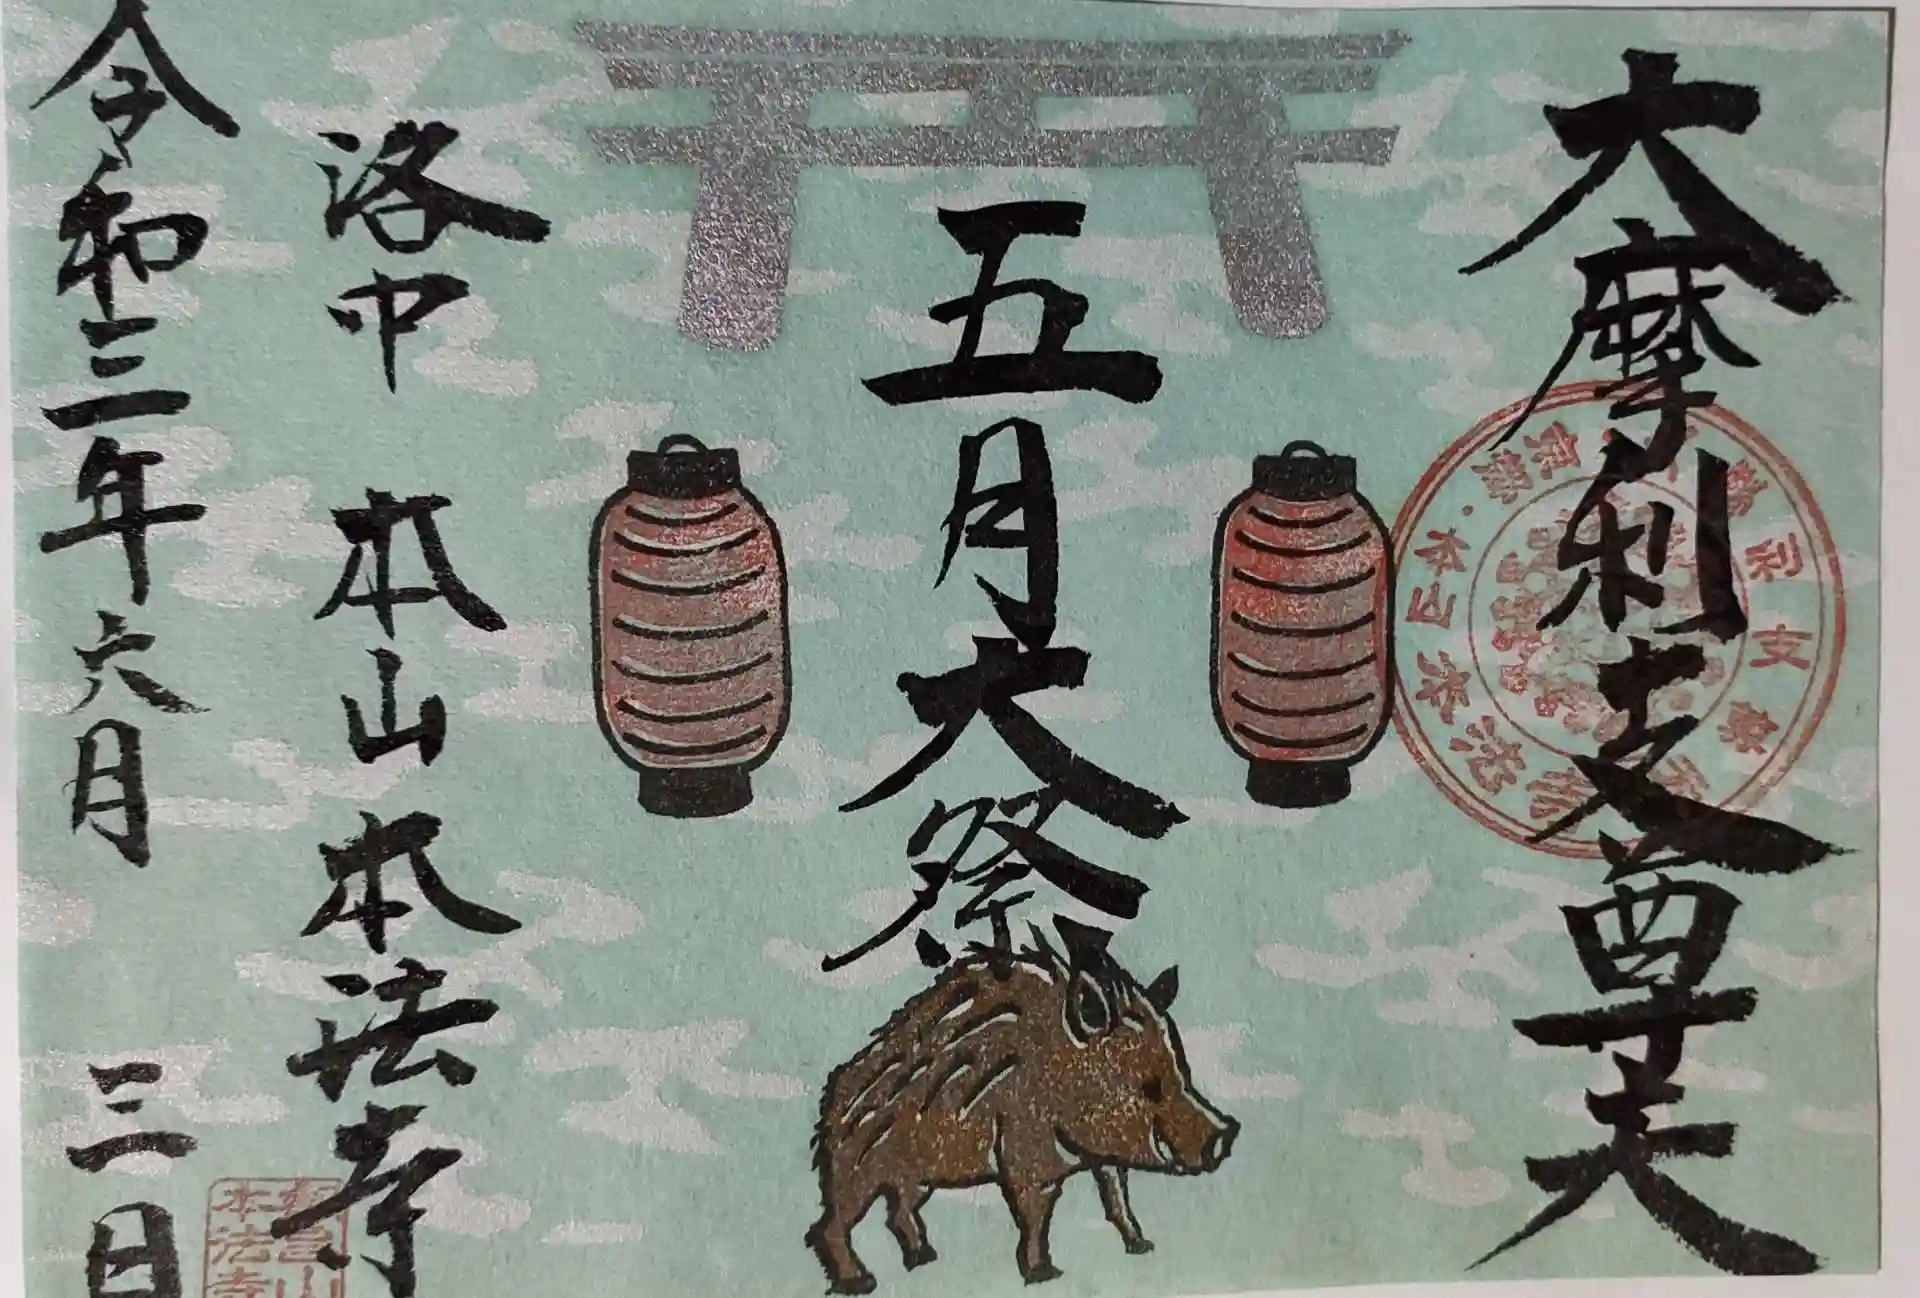 大摩利支尊天
五月大祭
洛中 本山 本法寺
令和三年六月 三日
利支
本山 本法寺
本法寺